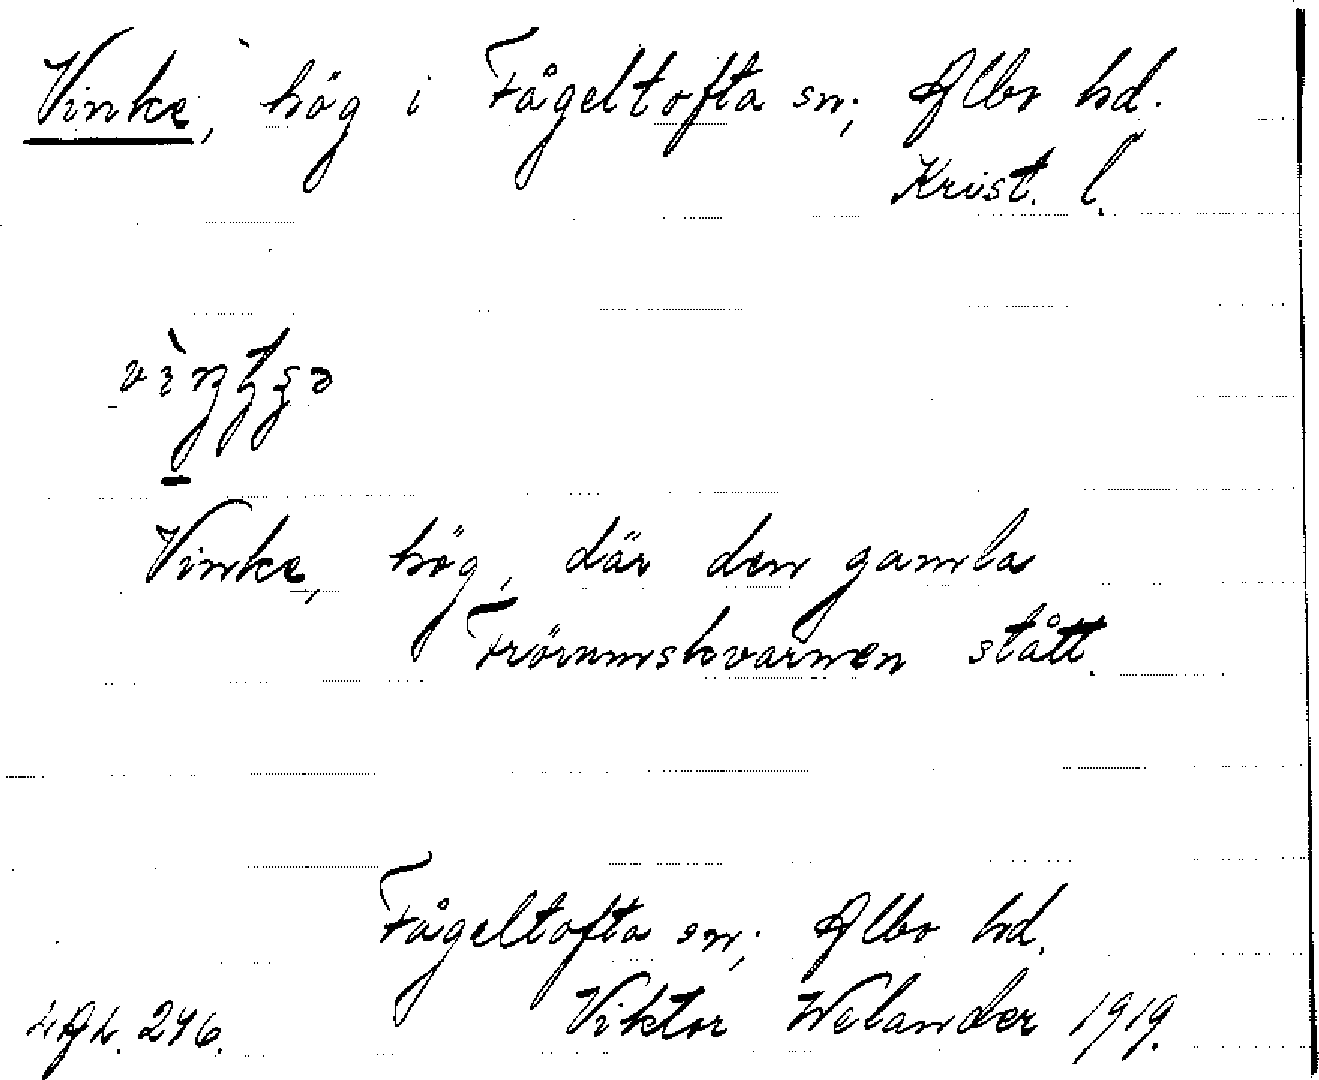 Vinke, hög i Fågeltofta sn; Albo hd.
Krist. l.
Vinke, hög, där den gamla
Frörumskvarnen stått.
Fågeltofta sn; Albo hd.
Viktor Welander 1919.